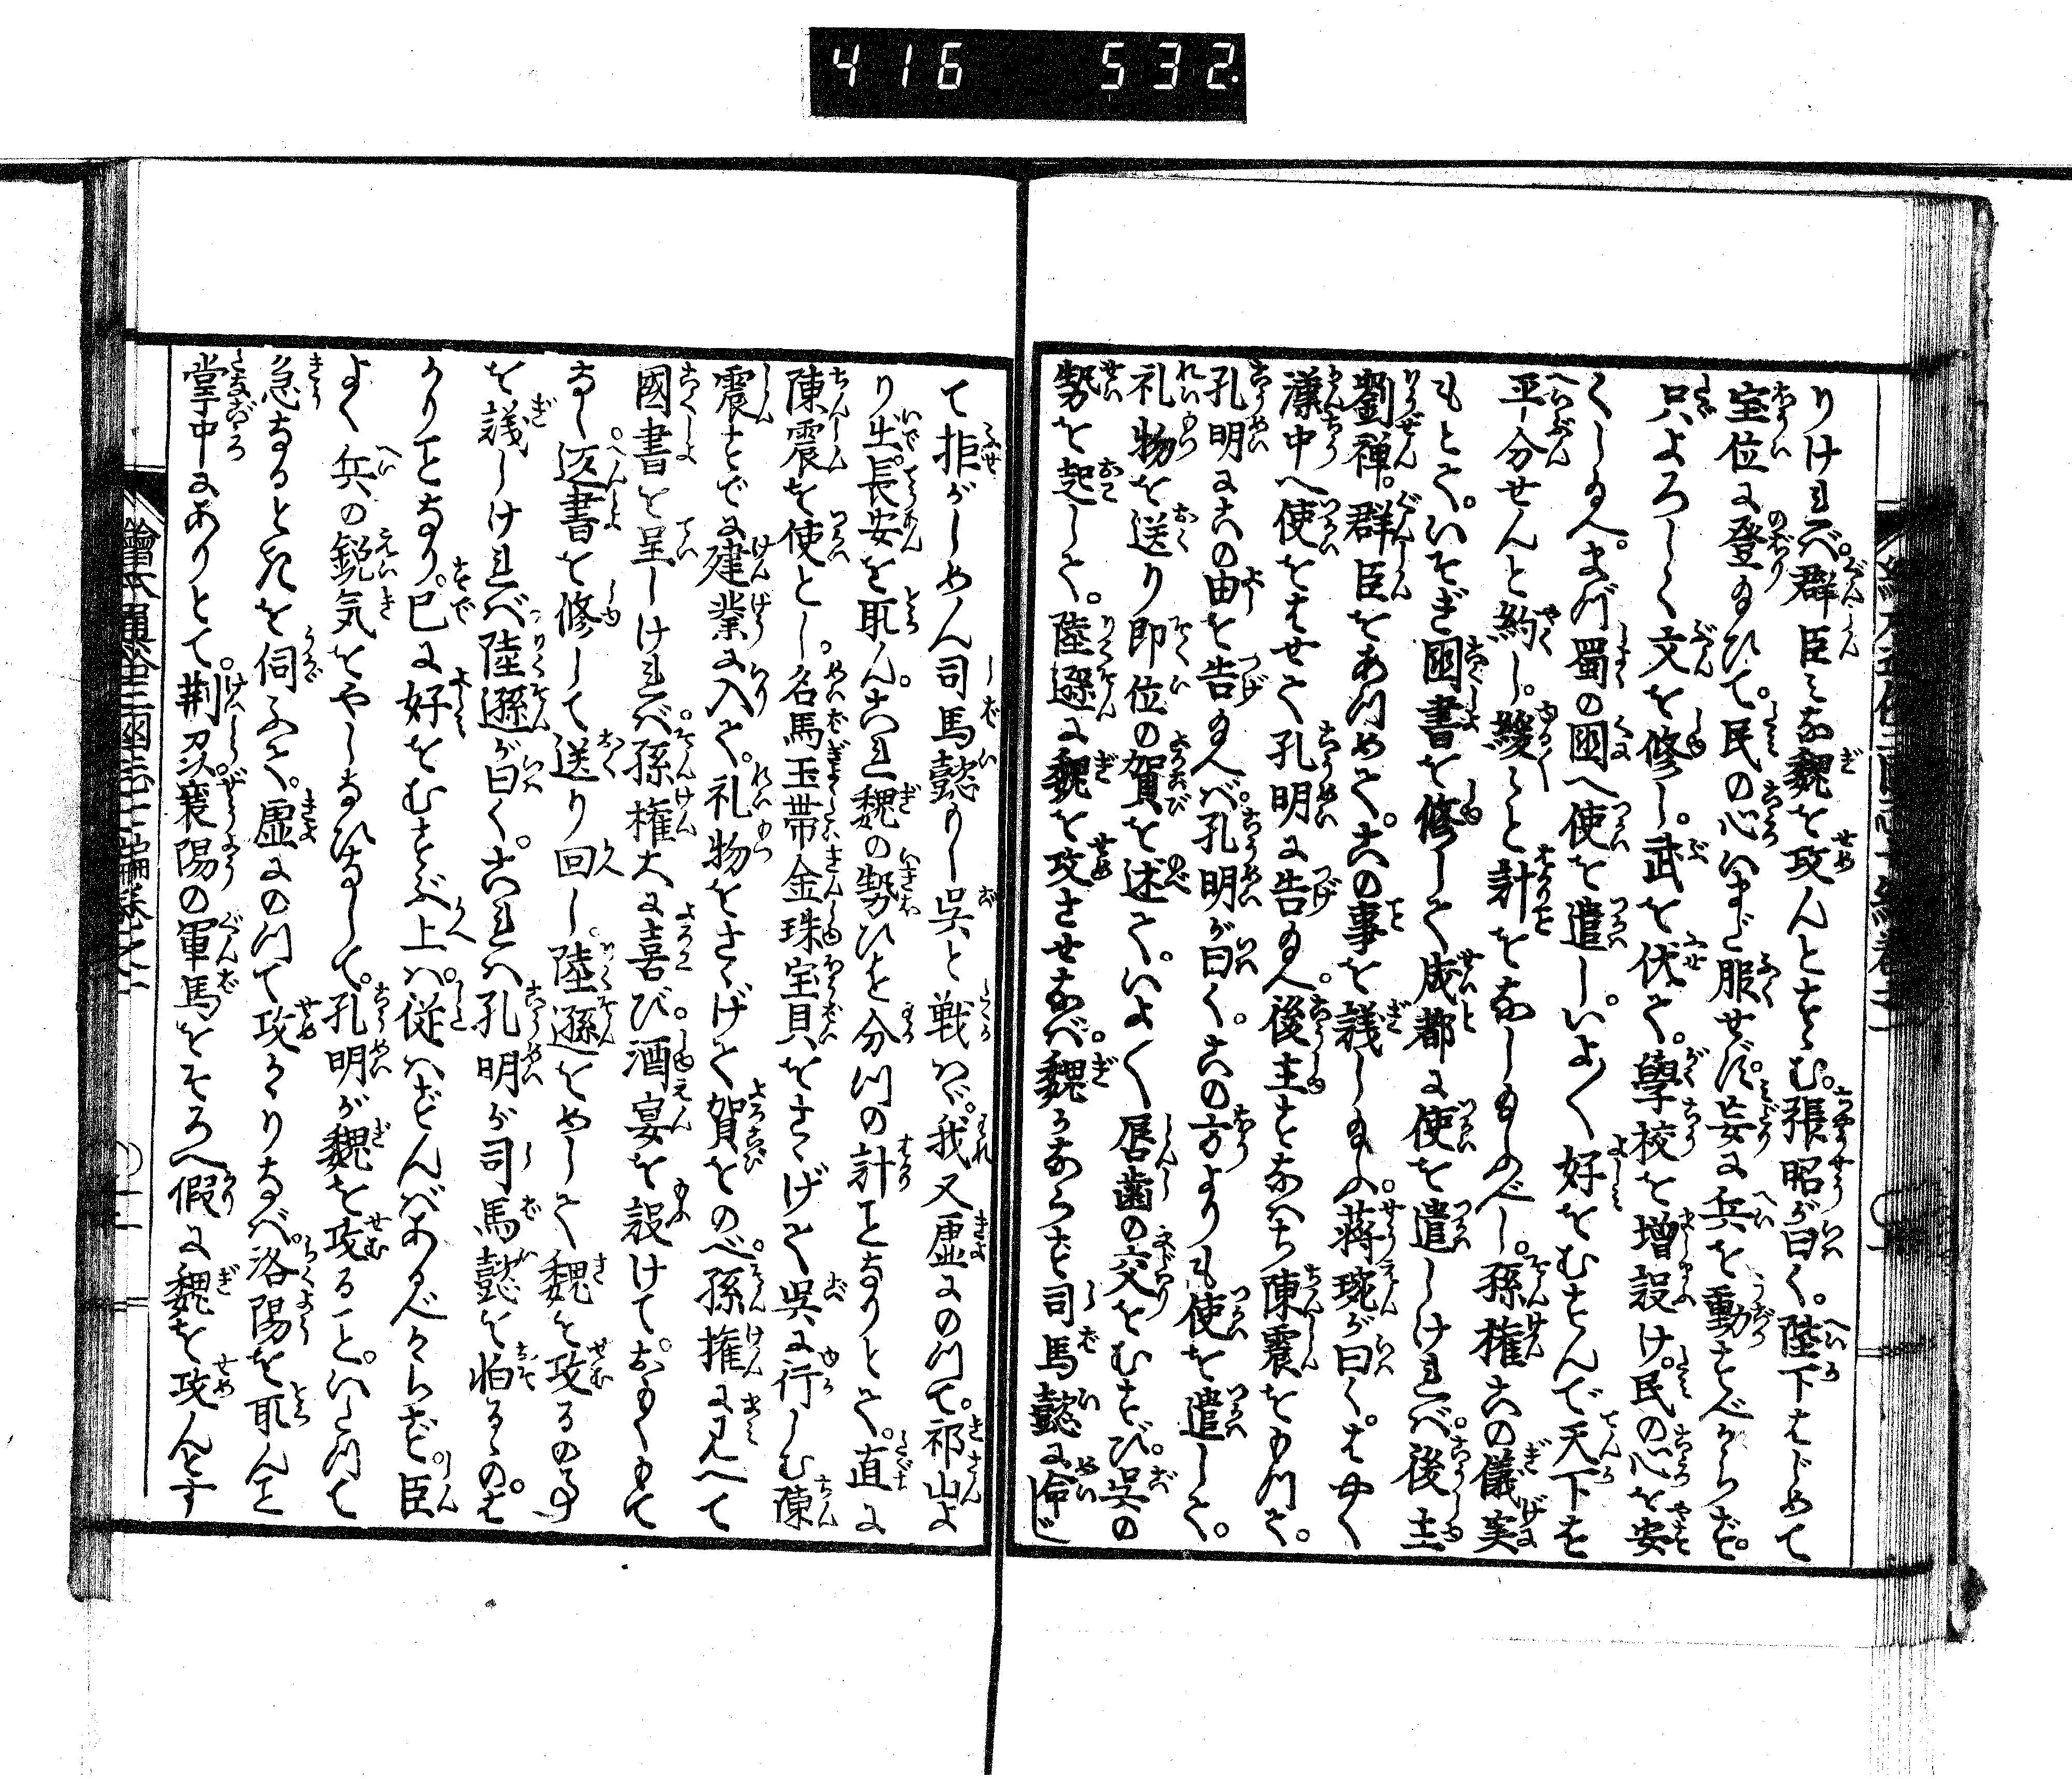 416 532.
りければ。群臣みな魏を攻んとすゝむ。張昭が曰く。陛下はじめて
宝位に登玉ひて。民の心いまだ服せず。妄に兵を動すべからず。
只よろしく文を修し。武を伏て。学校を増設け。民の心を安
くし玉へ。まづ蜀の国へ使を遣し。いよ〱好をむすんで天下を
平分せんと約し。緩〻と計をなし玉ふべし。孫権此の儀実
もとて。いそぎ国書を修して成都に使を遣しければ。後主
劉禅。群臣をあつめて。此の事を議し玉ふ。蒋琬が曰く。はやく
漢中へ使をはせて孔明に告玉へ。後主すなはち陳震をもつて。
孔明に此の由を告玉へば。孔明が曰く。此の方よりも使を遣して。
礼物を送り即位の賀を述て。いよ〱唇歯の交をむすび。呉の
勢を起して。陸遜に魏を攻させなば。魏かならず司馬懿に命じ
て拒がしめん司馬懿もし呉と戦はゞ。我又虚にのつて。祁山よ
り出。長安を取ん。これ魏の勢ひを分つの計ことなりとて。直に
陳震を使とし。名馬玉帯金珠宝貝をさゝげて呉に行しむ陳
震すでに建業に入て。礼物をさゝげて賀をのべ。孫権に見へて
國書を呈しければ。孫権大に喜び。酒宴を設けて。おもくもて
なし。返書を修して送り回し。陸遜をめして魏を攻るの事
を議しければ陸遜が曰く。これハ孔明が司馬懿を怕るゝのは
かりことなり。已に好をむすぶ上ハ。従ハずんばあるべからず。臣
よく兵の鋭気をやしなひなして。孔明が魏を攻ること。いたつて
急なるときを伺ふて。虚にのつて攻かゝりなば。洛陽を取んこと
掌中にありとて。荊州。襄陽の軍馬をそろへ假に魏を攻んとす
繪本通俗三國志七編巻之二